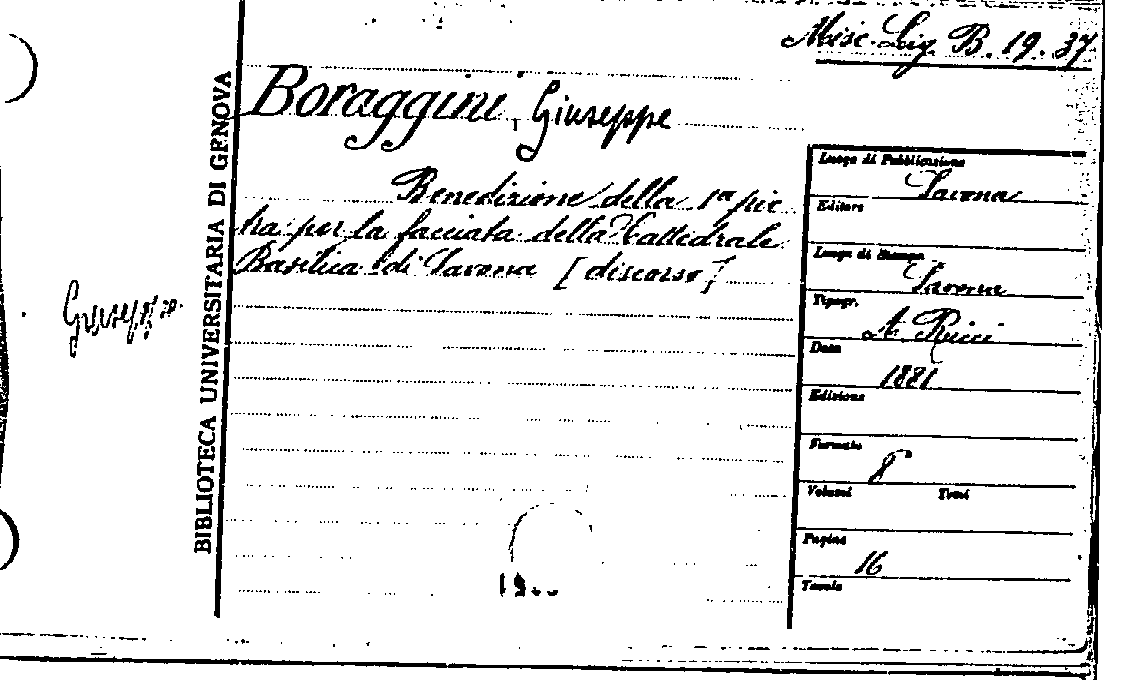 Misc. Lig. B. 19. 37
Boraggini, Giuseppe
Benedizione della 1ª pie
tra per la facciata della Cattedrale
Basilica di Savona [discorso]
Giuseppe
BIBLIOTECA UNIVERSITARIA DI GENOVA
Luogo di Pubblicazione
Savona
Editore
Luogo di Stampa
Savona
Tipogr.
A. Ricci
Data
1881
Edizione
Formato
8°
Volumi Tomi
Pagine
16
Tavole